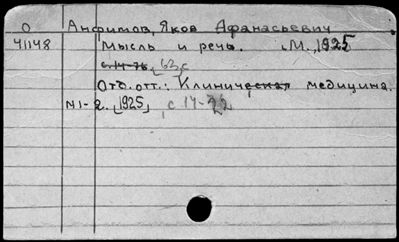 О Анфимов, Яков Афанасьевич
41148 Мысль и речь. М., 1925
с. 14-76, 63 с
Отд. отт.: Клиническая медицина.
N 1-2. [1925] с 14-22